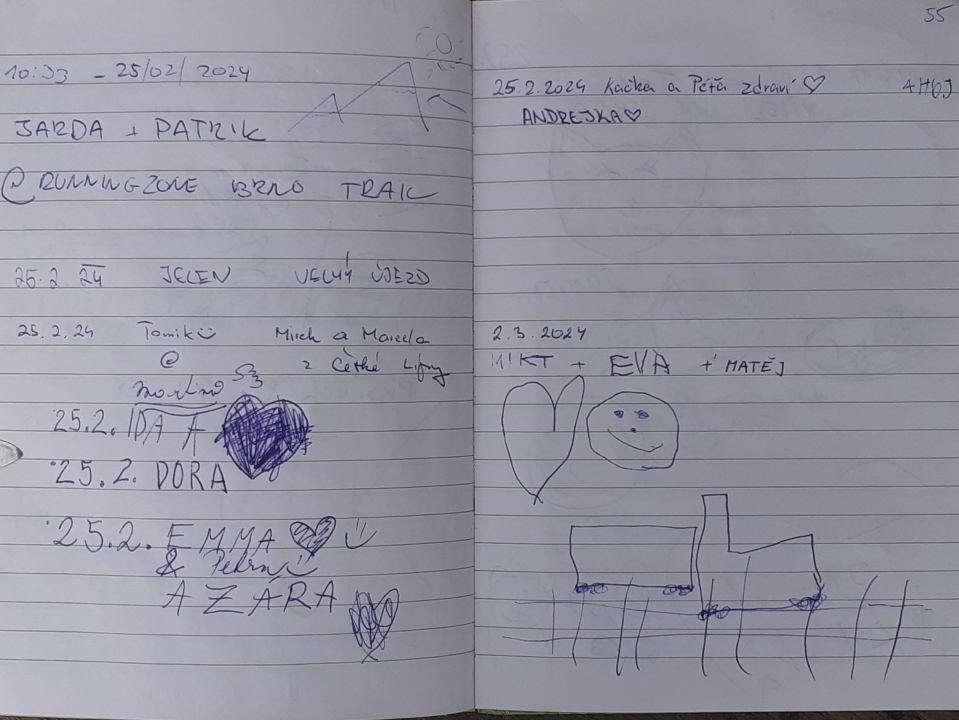 10:33 - 25/02/ 2024
JARDA + PATRIK
@ RUNNINGZONE BRNO TRAIL
25.2.24 JELEN VELKÝ ÚJEZD
25.2.24 Tomik Mirek a Marcela
@ z České Lípy
Martina
25.2. IDA A
25.2. DORA
25.2. EMMA
& Petra
A ZÁRA
55
25.2.2024 Kačka a Péťa zdraví ♡ AHOJ
ANDREJKA♡
2.3.2024
+ EVA + MATĚJ